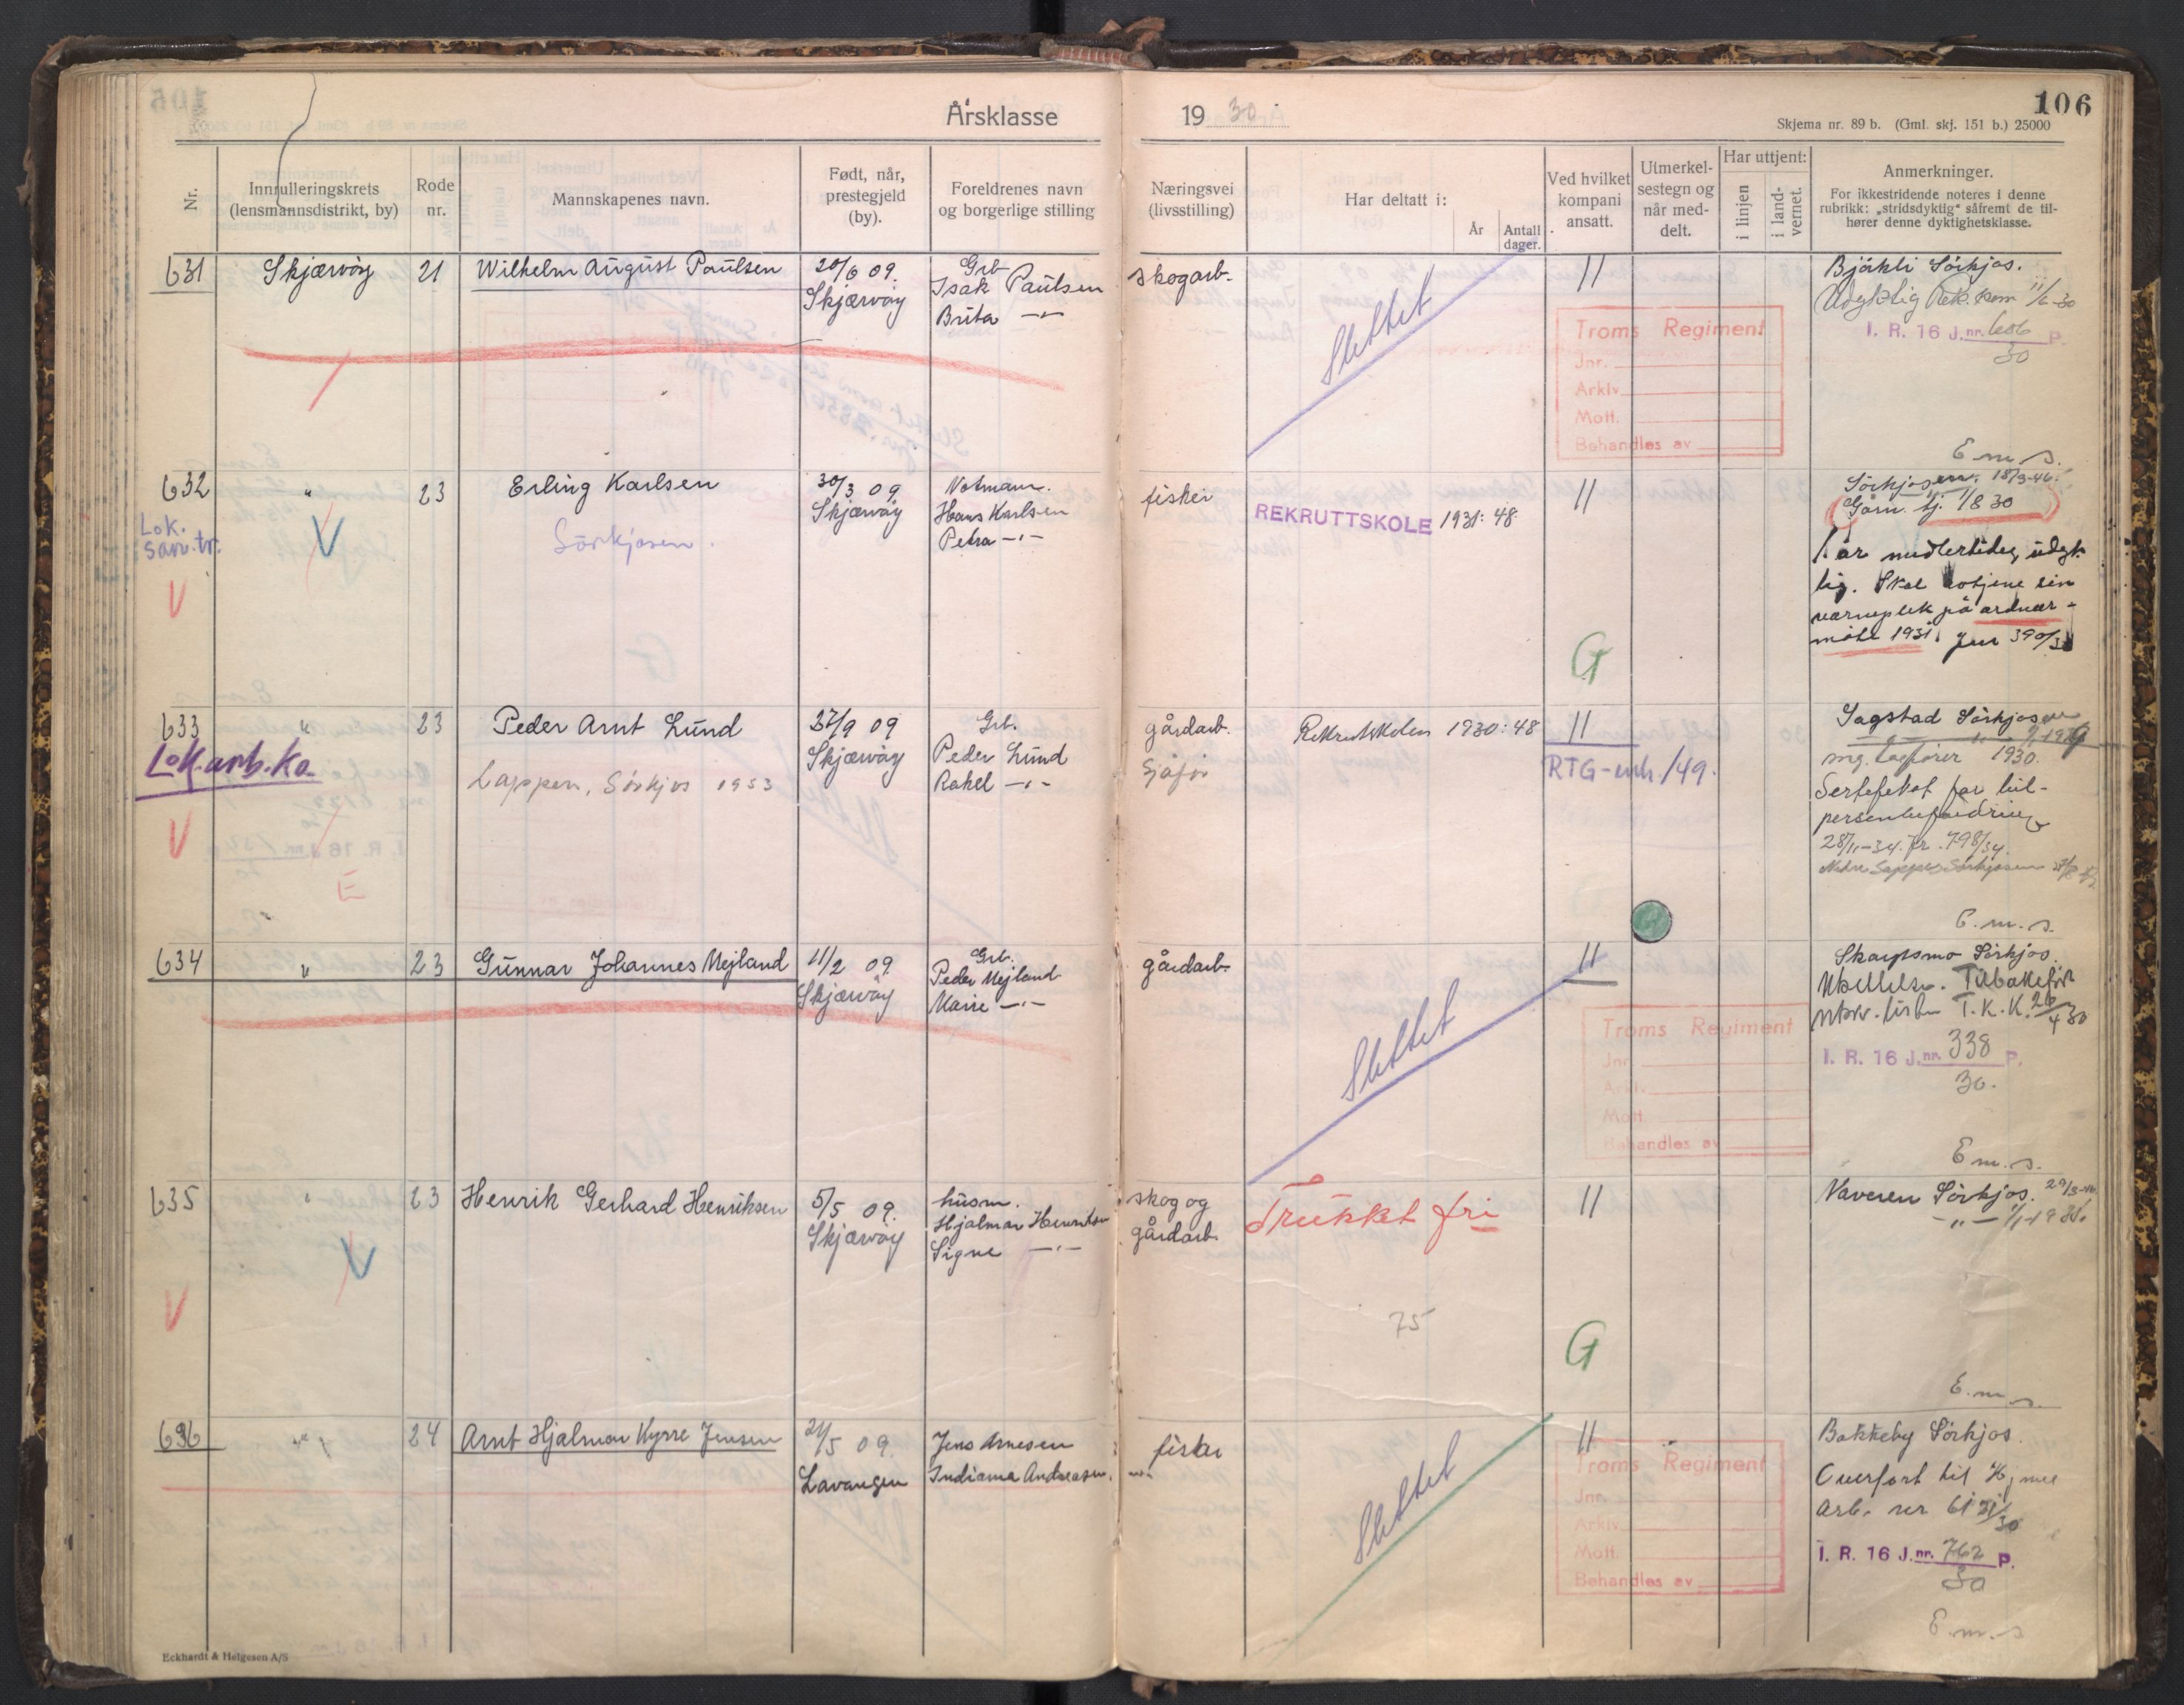 Årsklasse 1930.
106
Skjema nr. 89 b. (Gml. skj. 151 b.) 25000
Nr.
Innrulleringskrets
(lensmannsdistrikt, by)
Rode
nr.
Mannskapenes navn.
Født, når,
prestegjeld
(by).
Foreldrenes navn
og borgerlige stilling
Næringsvei
(livsstilling)
Har deltatt i:
År
Antall
dager.
Ved hvilket
kompani
ansatt.
Utmerkel-
sestegn og
når med-
delt.
Har uttjent:
i linjen
i land-
vernet.
Anmerkninger.
For ikkestridende noteres i denne
rubrikk: „stridsdyktig“ såfremt de til-
hører denne dyktighetsklasse.
631 Skjærvöy 21 Wilhelm August Paulsen
20/6 09.
Skjærvöy
Grb
Isak Paulsen
Brita —"—
skogarb.
Slettet
11
Troms Regiment
Jnr.
Arkiv
Mott.
Behandles av
Björkli Sörkjos.
Udyktig Rek. kom 11/6 30
I. R. 16 J.nr. 606 P.
30
E.m.s.
632 " 23 Erling Karlsen
Lok.
san.tr.
V
V
Sörkjosen.
30/3 09
Skjærvöy
Notmann.
Hans Karlsen
Petra —"—
fisker
REKRUTTSKOLE 1931: 48
11
G
Sörkjosen. 18/3-46.
Garn. tj. 1/8 30
1 år midlertidig udyk-
tig. Skal avtjene sin
verneplikt på ordinær-
möte 1931. Jnr 390/31
633 " 23 Peder Arnt Lund
Lok.arb.ko.
V
E
Lappen, Sörkjos 1953
27/9 09
Skjærvöy
Grb.
Peder Lund
Rakel —"—
gårdarb.
Sjåfør
Rekrutskolen 1930: 48
11
RTG-enh./49.
Sagstad Sörkjosen
mg. lagförer 1930.
Sertefekat for bil-
personbefordring
28/11-34. Jr. 798/34.
E.m.s.
634 " 23 Gunnar Johannes Mejland
11/2 09.
Skjærvöy
Grb.
Peder Mejland
Marie —"—
gårdarb.
Slettet
11
Troms Regiment
Jnr.
Arkiv
Mott.
Behandles av
Skarpsmo Sörkjos.
Tilbakefört
T. K. K. 26/4 30
I. R. 16 J.nr. 338 P.
30.
E.m.s.
635 " 23 Henrik Gerhard Henriksen
V
V
5/5 09.
Skjærvöy
husm.
Hjalmar Henriksen
Signe —"—
skog og
gårdarb.
Trukket fri
75
11
G
Naveren Sörkjos. 29/3-46.
—"—
E.m.s.
636 " 24 Arnt Hjalmar Kyrre Jensen
21/5 09.
Lavangen
Jens Arnesen
Indiana Andreasen.
fisker
Slettet
11
Troms Regiment
Jnr.
Arkiv
Mott.
Behandles av
Bakkeby Sörkjos.
Overfört til Hj mee
Arb. nr 61 21/5 30
I. R. 16 J.nr. 762 P.
30
E.m.s
Eckhardt & Helgesen A/S